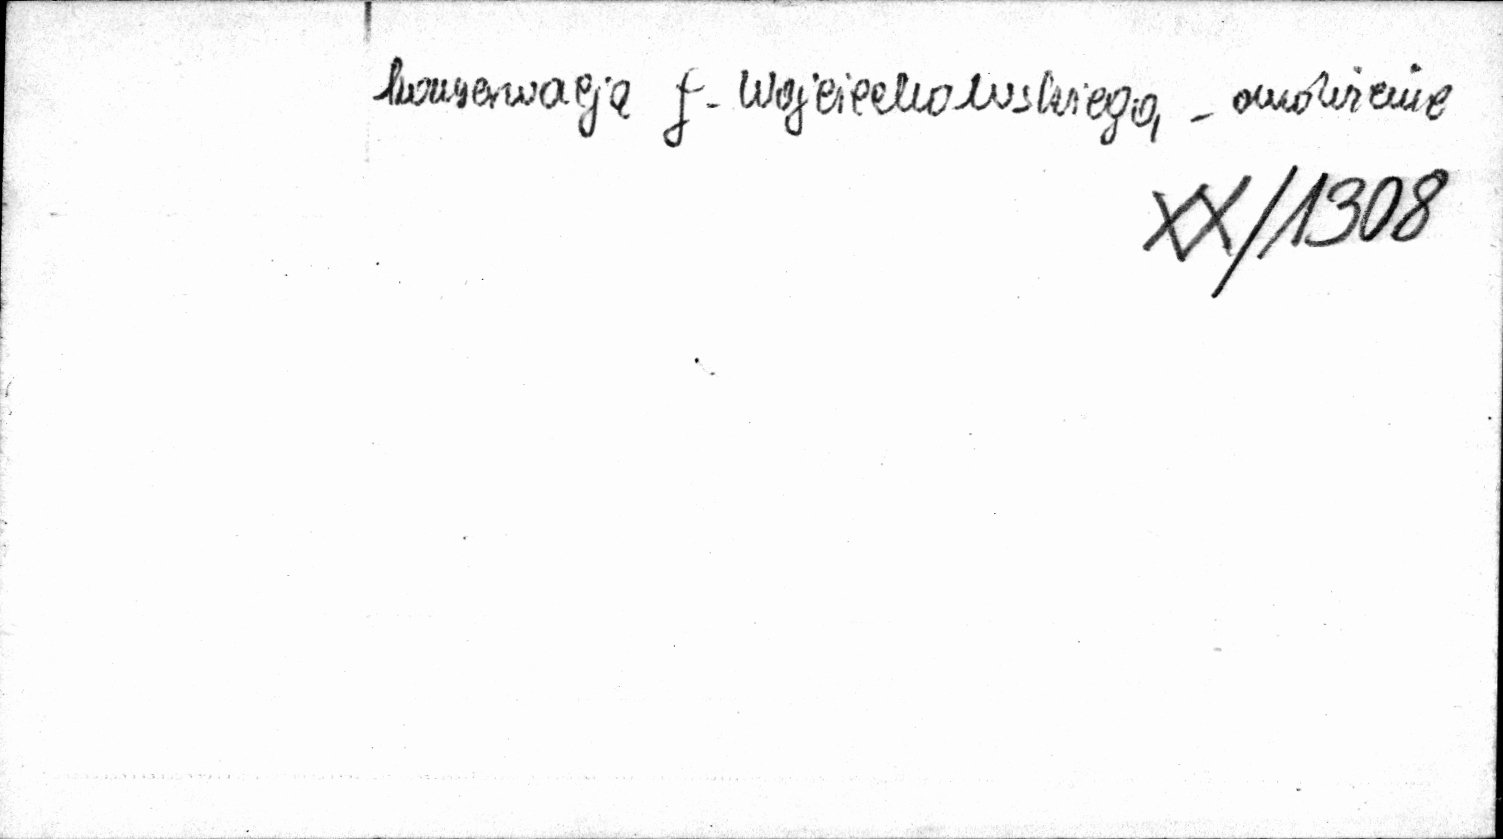 konserwacją J. Wojciechowskiego, - omówienie
XX/1308